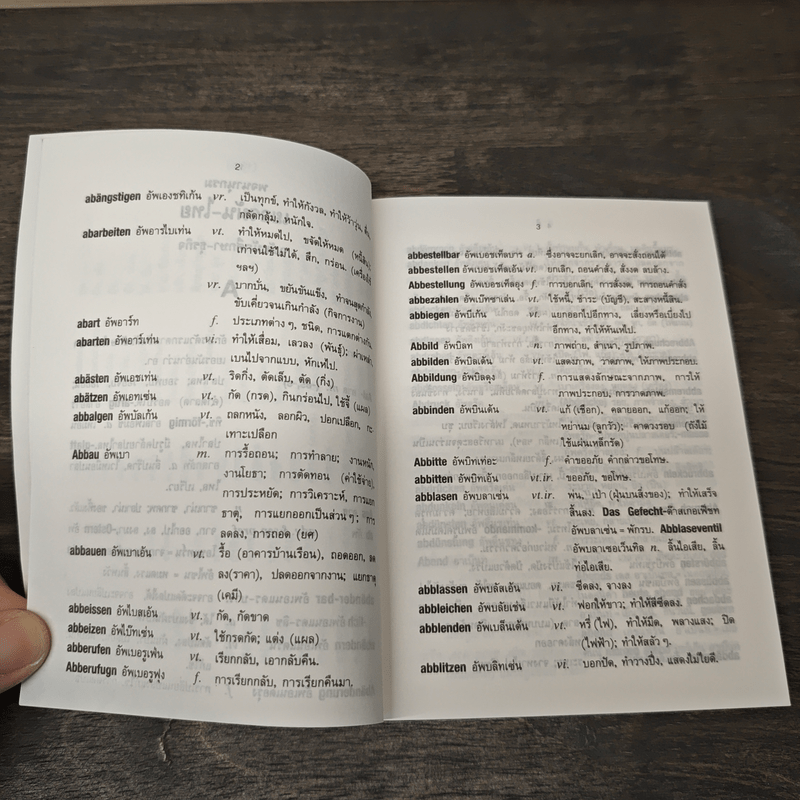 2
abängstigen อัพเองชทิเก้น vr. เป็นทุกข์, ทำให้กังวล, ทำให้ว้าวุ่น,
กลัดกลุ้ม, หนักใจ.
abarbeiten อัพอารไบเท่น vt. ทำให้หมดไป, ขจัดให้หมด (หนี้สิน)
เก่าจนใช้ไม่ได้, สึก, กร่อน.
ฯลฯ)
vr. บากบั่น, ขยันขันแข็ง, ทำจนสุดกำลัง
ขับเคี่ยวจนเกินกำลัง (กิจการงาน)
abart อัพอาร์ท f. ประเภทต่าง ๆ, ชนิด, การแตกต่างกัน,
abarten อัพอาร์เท่น vt. ทำให้เสื่อม, เลวลง (พันธุ์); ผ่าเหล่า
เบนไปจากแบบ, หักเหไป.
abästen อัพเอชเท่น vt. ริดกิ่ง, ตัดเล็บ, ตัด (กิ่ง)
abätzen อัพเอทเซ่น vt. กัด (กรด), กินกร่อนไป, ใช้จี้ (แผล)
abbalgen อัพบัลเก้น vt. ถลกหนัง, ลอกผิว, ปอกเปลือก, กะ
เทาะเปลือก
Abbau อัพเบา m. การรื้อถอน; การทำลาย; งานหนัก,
งานโยธา; การตัดทอน (ค่าใช้จ่าย),
การประหยัด; การวิเคราะห์, การแยก
ธาตุ, การแยกออกเป็นส่วน ๆ; การ
ลดลง, การถอด (ยศ)
abbauen อัพเบาเอ้น vt. รื้อ (อาคารบ้านเรือน), ถอดออก, ลด
ลง(ราคา), ปลดออกจากงาน; แยกธาตุ
(เคมี)
abbeissen อัพไบสเอ้น vt. กัด, กัดขาด
abbeizen อัพไบ๊ทเซ่น vt. ใช้กรดกัด; แต่ง (แผล)
abberufen อัพเบอรูเฟ่น vt. เรียกกลับ, เอากลับคืน.
Abberufugn อัพเบอรูฟุ่ง f. การเรียกกลับ, การเรียกคืนมา,
3
abbestellbar อัพเบอชเท็ลบาร a. ซึ่งอาจจะยกเลิก, อาจจะสั่งถอนได้
abbestellen อัพเบอชเท็ลเอ้น vt. ยกเลิก, ถอนคำสั่ง, สั่งงด ลบล้าง.
Abbestellung อัพเบอชเท็ลอุง f. การบอกเลิก, การสั่งงด, การถอนคำสั่ง
abbezahlen อัพเบ๊ทซาเล่น vt. ใช้หนี้, ชำระ (บัญชี), สะสางหนี้สิน.
abbiegen อัพบีเก้น vt. แยกออกไปอีกทาง, เลี่ยงหรือเบี่ยงไป
อีกทาง, ทำให้หันเหไป.
Abbild อัพบิลท n. ภาพถ่าย, สำเนา, รูปภาพ.
abbilden อัพบิลเด้น vt. แสดงภาพ, วาดภาพ, ให้ภาพประกอบ.
Abbildung อัพบิลดุง f. การแสดงลักษณะจากภาพ, การให้
ภาพประกอบ, การวาดภาพ.
abbinden อัพบินเด้น vt. แก้ (เชือก), คลายออก, แก้ออก; ให้
หย่านม (ลูกวัว); คาดวงรอบ (ถังไม้
ใช้แผ่นเหล็กรัด)
Abbitte อัพบิทเท่อะ f. คำขออภัย คำกล่าวขอโทษ.
abbitten อัพบิทเอ้น vt.ir. ขออภัย, ขอโทษ.
abblasen อัพบลาเซ่น vt.ir. พ่น, เป่า (ฝุ่นบนสิ่งของ); ทำให้เสร็จ
สิ้นลง. Das Gefecht-ด๊าสเกอเฟ็ชท์
อัพบลาเซ่น = พักรบ. Abblaseventil
อัพบลาเซอเว็นทิล n. ลิ้นไอเสีย, ลิ้น
ท่อไอเสีย.
abblassen อัพบลัสเอ้น vi. ซีดลง, จางลง
abbleichen อัพบลัยเช่น vt. ฟอกให้ขาว; ทำให้สีซีดลง.
abblenden อัพเบล็นเด้น vt. หรี่ (ไฟ), ทำให้มืด, พลางแสง; ปิด
(ไฟฟ้า); ทำให้สลัว ๆ.
abblitzen อัพบลิทเซ่น vi. บอกปัด, ทำวางปึ่ง, แสดงไม่ใยดี.